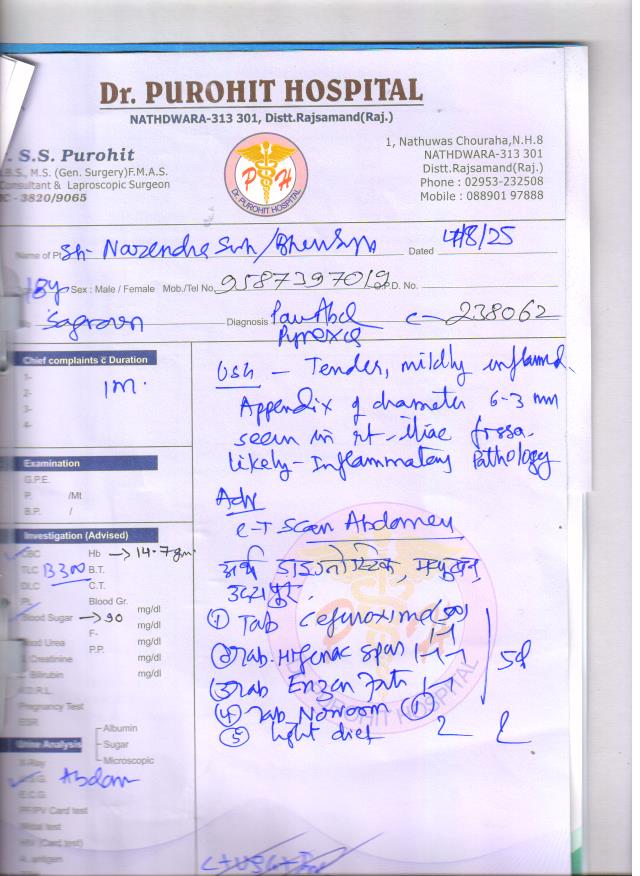 Dr. PUROHIT HOSPITAL
NATHDWARA-313 301, Distt.Rajsamand(Raj.)
. S.S. Purohit
.B.S., M.S. (Gen. Surgery)F.M.A.S.
Consultant & Laproscopic Surgeon
MC - 3820/9065
DR PUROHIT HOSPITAL
P H
1, Nathuwas Chouraha,N.H.8
NATHDWARA-313 301
Distt.Rajsamand(Raj.)
Phone : 02953-232508
Mobile : 088901 97888
Name of Pt. Sh- Narendra Dated 4/8/25
Sex : Male / Female Mob./Tel No. 9587397019 O.P.D. No.
Diagnosis 238062
Pyrexia
Chief complaints c̄ Duration
1-
2-
3-
4-
1m.
Examination
G.P.E.
P. /Mt
B.P. /
Investigation (Advised)
CBC Hb → 14.7gm
TLC B.T.
DLC C.T.
Blood Gr.
Blood Sugar → 90 mg/dl
F- mg/dl
Blood Urea P.P. mg/dl
Creatinine mg/dl
Bilirubin mg/dl
V.D.R.L.
Pregnancy Test
ESR
Urine Analysis
Albumin
Sugar
Microscopic
X-Ray
U.S.G. Abdom
E.C.G.
PF/PV Card test
Widal test
HIV (Card test)
A. antigen
USG - Tender, mildly inflamd
Appendix of diameter 6-3 mm
seen in rt-iliac fossa.
likely- Inflammatory Pathology
Adv
C-T Scan Abdomen
① Tab Cefuroxime
② Tab. Hifenac span 1-1
③ Tab Enzen forte 5d
④ Tab
⑤ light diet